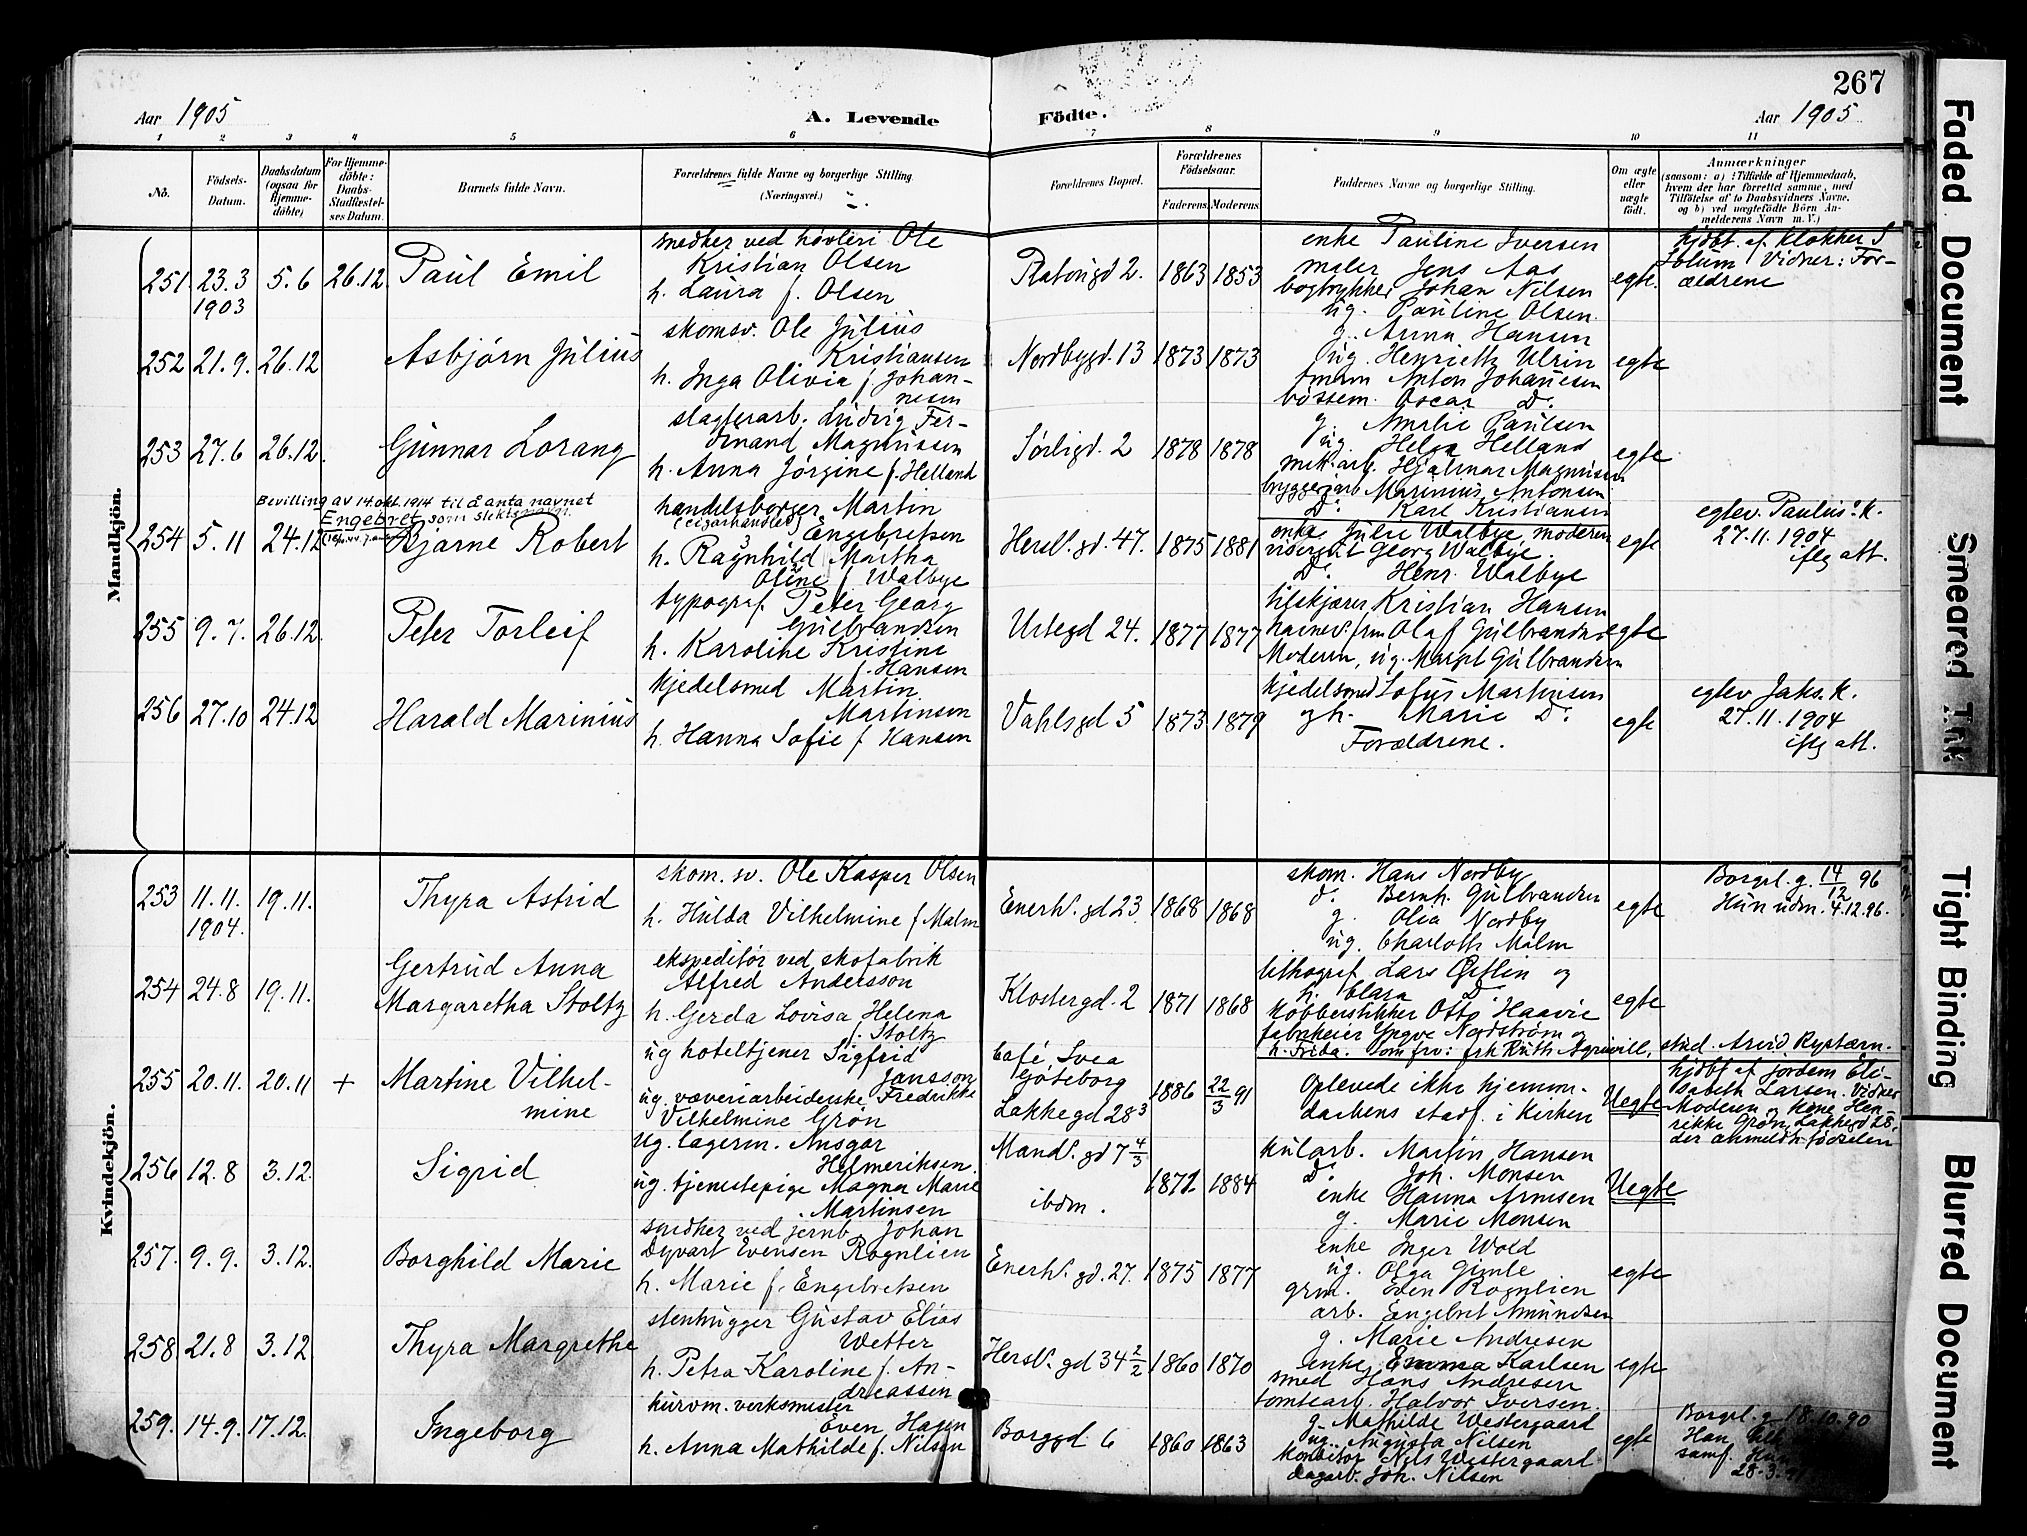 267
Aar 1905
A. Levende
Födte.
Aar 1905
1 2 3 4 5 6 7 8 9 10 11
No.
Födsels-
Datum.
Daabsdatum
(ogsaa for
Hjemme-
döbte)
For Hjemme-
döbte:
Daabs-
Stadfæstel-
ses Datum.
Barnets fulde Navn.
Forældrenes fulde Navne og borgerlige Stilling
(Næringsvei.)
Forældrenes Bopæl.
Forældrenes
Födselsaar.
Faderens.
Moderens
Faddernes Navne og borgerlige Stilling.
Om ægte
eller
uægte
født.
Anmærkninger
(saasom: a) i Tilfælde af Hjemmedaab,
hvem der har forrettet samme, med
Tilföielse af to Daabsvidners Navne,
og b) ved uægtefödte Börn An-
melderens Navn m. V.)
Mandkjön.
251 23.3 1903 5.6 26.12 Paul Emil
snedker ved høvleri Ole
Kristian Olsen
h. Laura f. Olsen
Ratongd 2. 1863 1853
enke Pauline Iversen
maler Jens Aas
bogtrykker Johan Nilsen
ug. Pauline Olsen
egte.
hjdbt. af klokker S
Vidner: For-
ældrene
252 21.9. 26.12 Asbjørn Julius
skomsv. Ole Julius
Kristiansen
h. Inga Olivia f. Johan-
nesen
Nordbygd. 13 1873 1873
g. Anna Hansen
ug. Henriette Ulrin
Anton Johansen
bössem. Oscar Do
egte
253 27.6 26.12. Gunnar Lorang
slagterarb. Ludvig Fer-
dinand Magnussen
h. Anna Jörgine f. Helland
Sørligd. 2 1878 1878
g. Amalie Paulsen
ug. Helga Helland
mek. arb. Hjalmar Magnussen
bryggeriarb Marinius Antonsen
Do Karl Kristiansen
egte
Bevilling av 14 okt. 1914 til å anta navnet
Engebret som slektsnavn.
254 5.11 24.12 Bjarne Robert
handelsborger Martin
(cigarhandler) Engebretsen
h. Ragnhild Martha
Oline f. Walbye
Hersl. gd. 47. 1875 1881
enke Julie Walbye, moderen
visergut Georg Walbye.
Do Henr. Walbye
egte
egtev. Paulus k.
27.11.1904
iflg att.
255 9.7. 26.12. Peter Torleif
typograf. Peter Georg
Gulbrandsen
h. Karoline Kristine
f. Hansen
Urtegd 24. 1877 1877
filskjærer Kristian Hansen
Olaf Gulbrandsen
Moderen, ug. Margit Gulbrandsen
egte
256 27.10 24.12 Harald Marinius
kjedelsmed Martin
Martinsen
h. Hanna Sofie f. Hansen
Vahlsgd 5 1873 1879
kjedelsmed Lofus Martinsen
og h. Marie Do
Forældrene.
egte
egtev Jaks. k.
27.11.1904
iflg att.
Kvindekjön.
253 11.11. 1904. 19.11. Thyra Astrid
skom. sv. Ole Kasper Olsen
h. Hulda Vilhelmine f Malm
Enerh. gd 23. 1868 1868
skom. Hans Nordby
d. Bernh. Gulbrandsen
g. Olea Nordby
ug. Charlotte Malm
egte
Borgel. g. 14/12 96
Hun udm. 4.12.96.
254 24.8 19.11. Gertrud Anna
Margaretha Stoltz
ekspeditør ved skofabrik
Alfred Andersson
h. Gerda Lovisa Helena
f. Stoltz
Klostergd. 2 1871 1868
lithograf Lars Øiflin og
h. Clara Do
kobberstikker Otto Haavie
fabrikeier Yngve Nordström og
h. Frida. som frv: frk Ruth Agrivill, stud. Arvid Rystærn.
egte
255 20.11. 20.11 + Martine Vilhel-
mine
ug hoteltjener Sigfrid
Jansson
ug. væveriarbeiderske Fredrikke
Vilhelmine Grøn
Café Svea
Göteborg
Lakkegd 28³ 1886 22/3 91
Oplevede ikke hjemm.-
daabens stadf. i kirken
Uegte
hjdbt af jordem Eli-
sabeth Larsen. Vidner
Moderen og kone Hen-
rikke Grøn, Lakkegd 28,
der anmeldte fødselen
256 12.8 3.12. Sigrid
ug. lagerm. Ansgar
Helmeriksen.
ug. tjenestepige Magna Marie
Martinsen
Mandl. gd 7 4/3
ibdm. 1872 1884
kularb. Martin Hansen
Do Joh. Monsen
enke Hanna Arnesen
g. Marie Monsen
Uegte
257. 9.9. 3.12. Borghild Marie
snedker ved jernb. Johan
Dyvart Evensen Rognlien
h. Marie f. Engebretsen
Enerh. gd. 27. 1875 1877
enke Inger Wold
ug. Olga Gimle
grm. Even Rognlien
arb. Engebret Amundsen
egte
258 21.8 3.12. Thyra Margrethe
stenhugger Gustav Elias
Wetter
h. Petra Karoline f. An-
dreassen
Hersl. gd 34 2/2 1860 1870
g. Marie Andresen
enke Emma Karlsen
smed Hans Andresen
tomtearb. Halvor Iversen.
egte
259. 14.9. 17.12. Ingeborg
kurvm. verksmester
Even Hagen
h. Anna Mathilde f. Nilsen
Borggd. 6 1860 1863
g. Mathilde Westergaard
ug. Augusta Nilsen
Nils Westergaard
dagarb. Joh. Nilsen
egte
Borgel. g 18.10.90
Han
samf.
28.3.
Faded Document
Smeared Ink
Tight Binding
Blurred Document